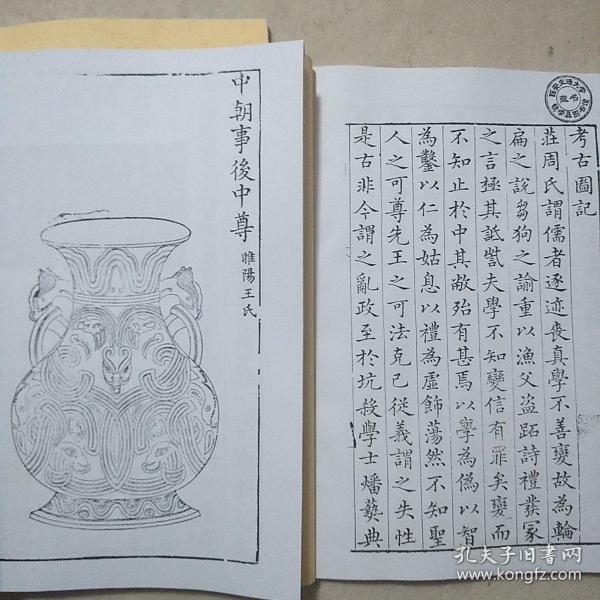 考古圖記
莊周氏謂儒者逐迹喪真學不善變故為輪
扁之說芻狗之諭重以漁父盜跖詩禮發冢
之言極其詆訾夫學不知變信有罪矣變而
不知止於中其敝殆有甚焉以學為偽以智
為鑿以仁為姑息以禮為虛飾蕩然不知聖
人之可尊先王之可法克己從義謂之失性
是古非今謂之亂政至於坑殺學士燔爇典
中朝事後中尊
睢陽王氏
西安交通大学
藏书
孔夫子旧书网
www.kongfz.com